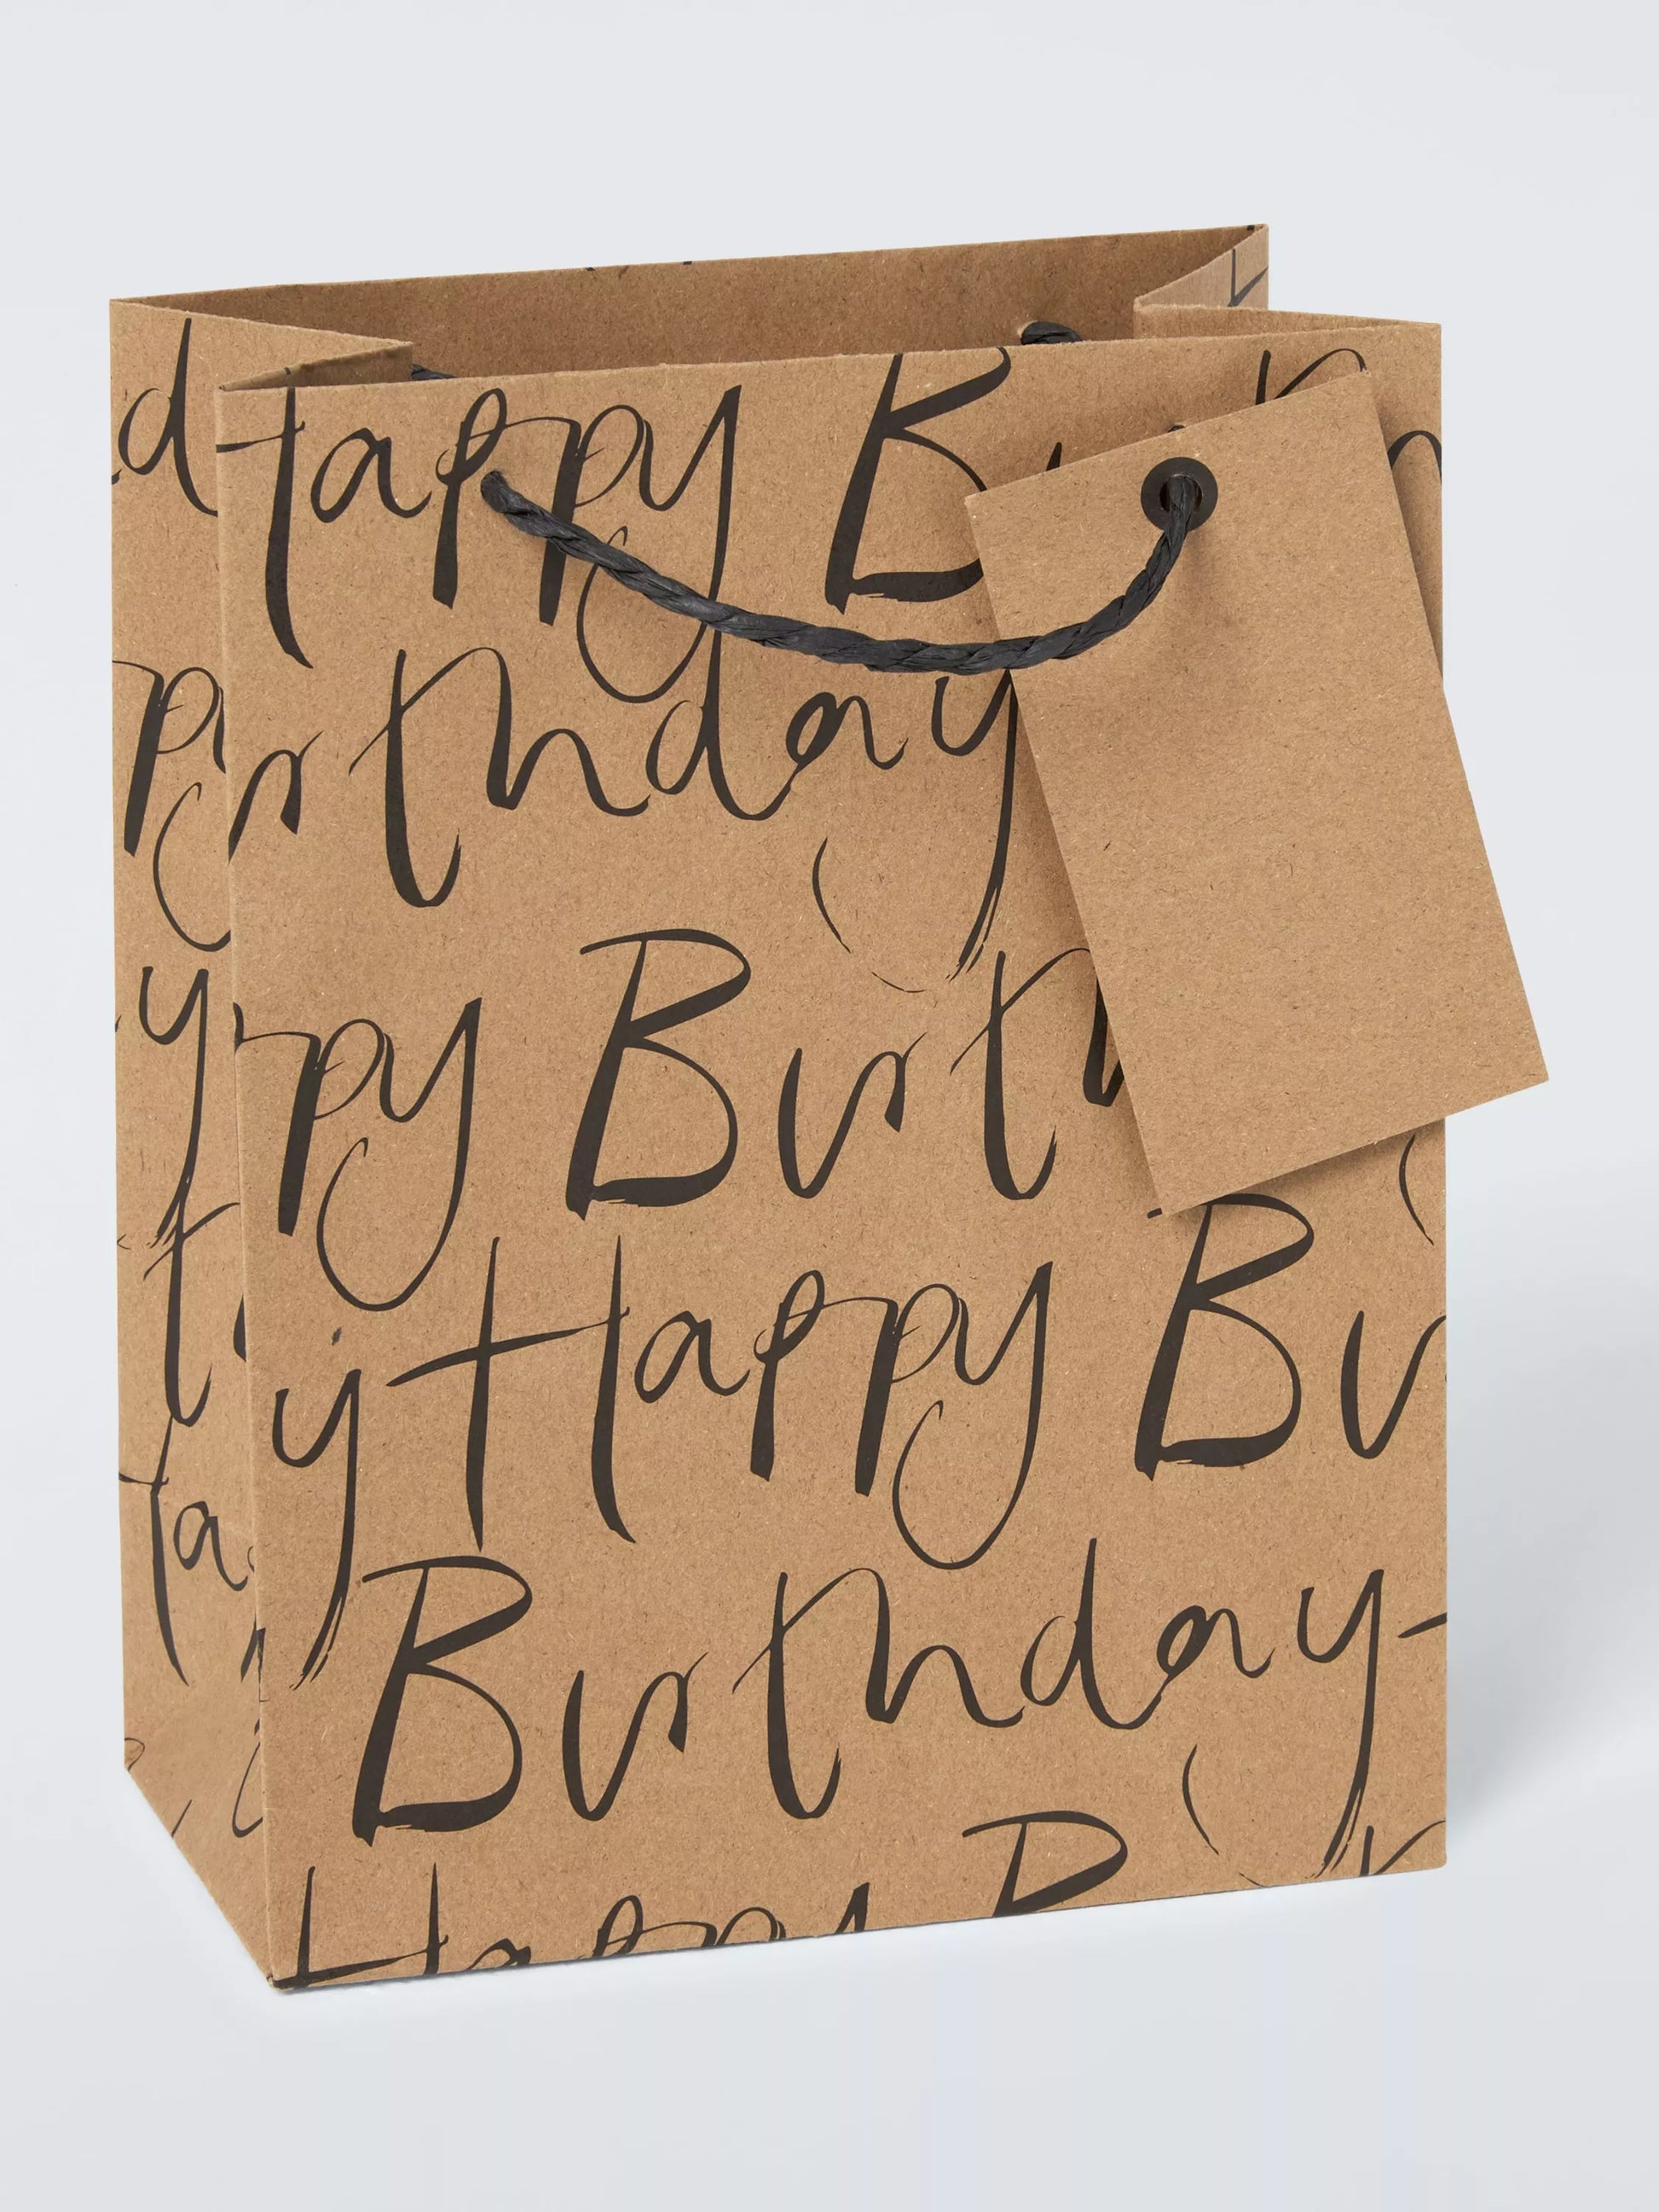 Happy B
rthday
ppy Birth
y Happy Bi
Birthday
Happy B